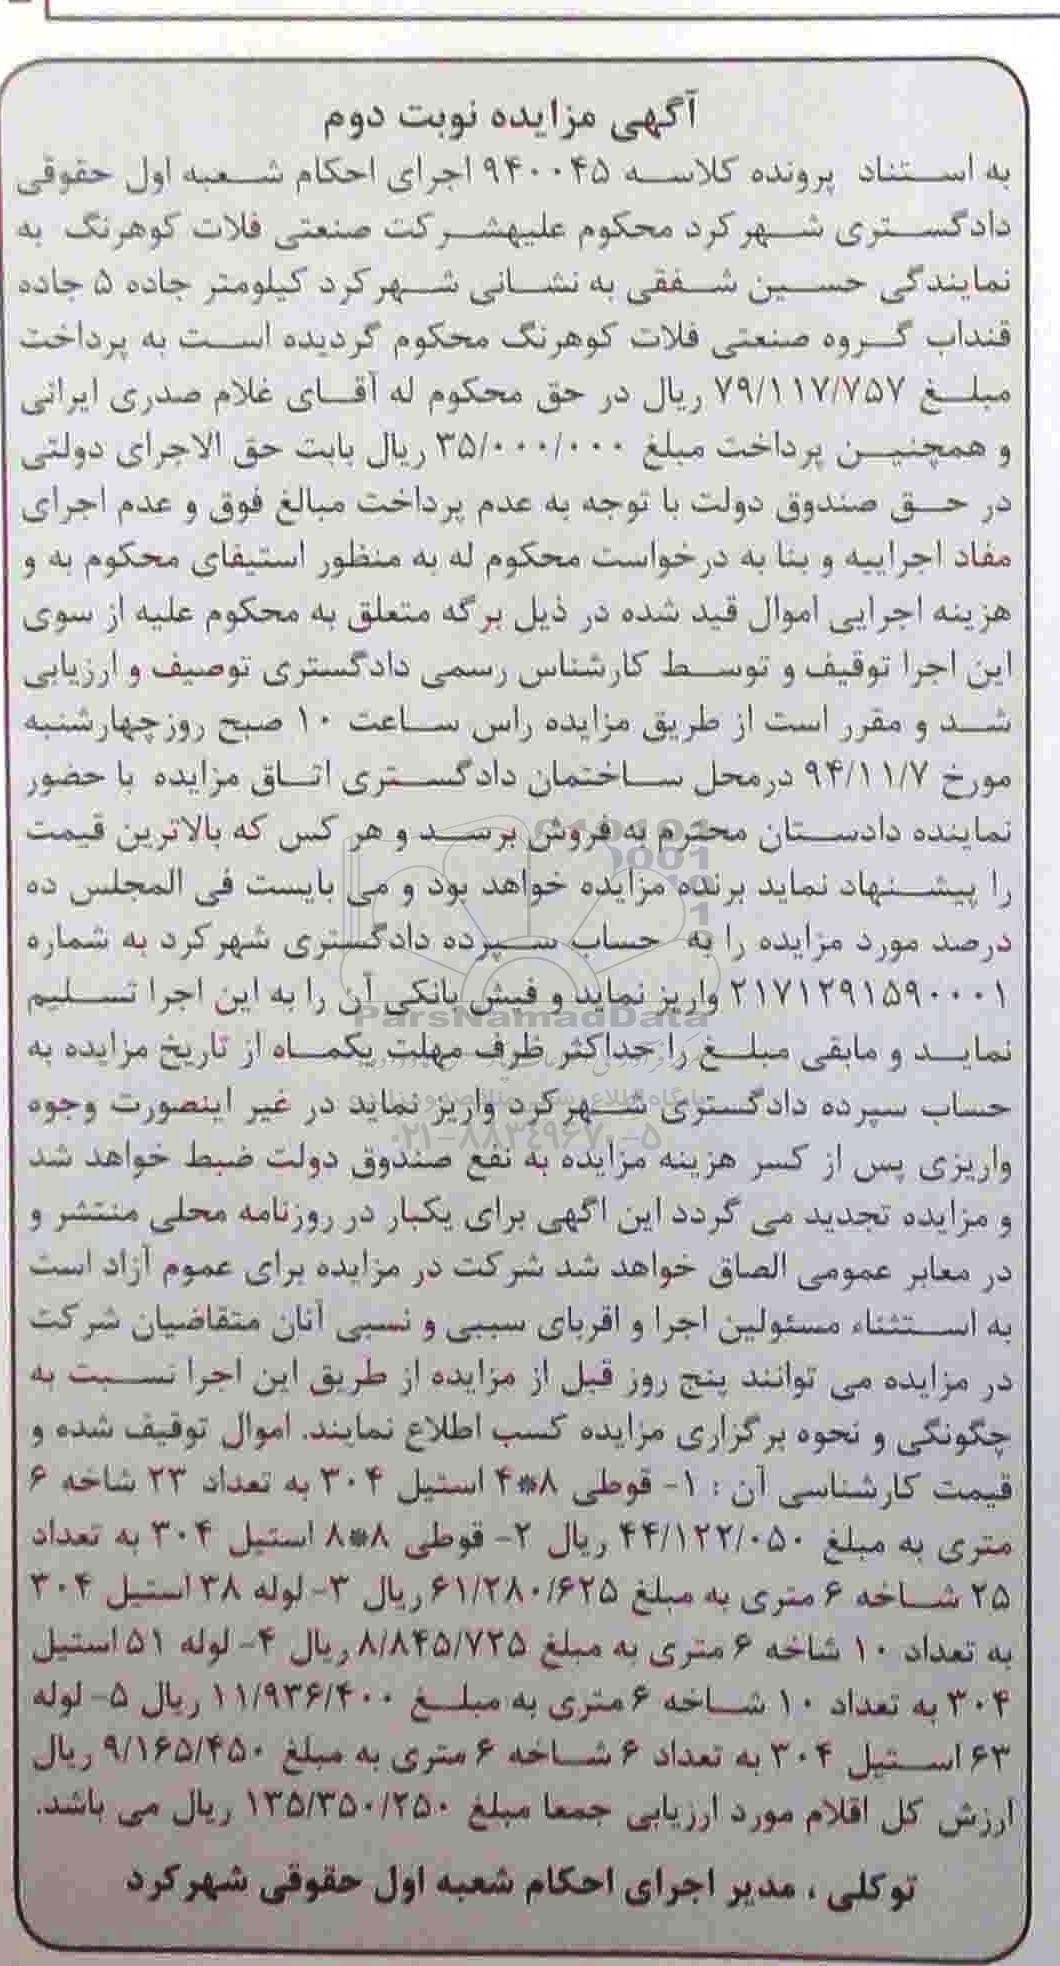 آگهی مزایده نوبت دوم
به استناد پرونده کلاسه ۹۴۰۰۴۵ اجرای احکام شعبه اول حقوقی
دادگستری شهرکرد محکوم علیهشرکت صنعتی فلات کوهرنگ به
نمایندگی حسین شفقی به نشانی شهرکرد کیلومتر جاده ۵ جاده
قنداب گروه صنعتی فلات کوهرنگ محکوم گردیده است به پرداخت
مبلغ ۷۹/۱۱۷/۷۵۷ ریال در حق محکوم له آقای غلام صدری ایرانی
و همچنین پرداخت مبلغ ۳۵/۰۰۰/۰۰۰ ریال بابت حق الاجرای دولتی
در حق صندوق دولت با توجه به عدم پرداخت مبالغ فوق و عدم اجرای
مفاد اجراییه و بنا به درخواست محکوم له به منظور استیفای محکوم به و
هزینه اجرایی اموال قید شده در ذیل برگه متعلق به محکوم علیه از سوی
این اجرا توقیف و توسط کارشناس رسمی دادگستری توصیف و ارزیابی
شد و مقرر است از طریق مزایده راس ساعت ۱۰ صبح روزچهارشنبه
مورخ ۹۴/۱۱/۷ درمحل ساختمان دادگستری اتاق مزایده با حضور
نماینده دادستان محترم به فروش برسد و هر کس که بالاترین قیمت
را پیشنهاد نماید برنده مزایده خواهد بود و می بایست فی المجلس ده
درصد مورد مزایده را به حساب سپرده دادگستری شهرکرد به شماره
۲۱۷۱۲۹۱۵۹۰۰۰۱ واریز نماید و فیش بانکی آن را به این اجرا تسلیم
ParsNamadData
نماید و مابقی مبلغ را حداکثر ظرف مهلت یکماه از تاریخ مزایده به
حساب سپرده دادگستری شهرکرد واریز نماید در غیر اینصورت وجوه
۰۲۱-۸۸۳۴۹۶۷۰-۵
واریزی پس از کسر هزینه مزایده به نفع صندوق دولت ضبط خواهد شد
و مزایده تجدید می گردد این اگهی برای یکبار در روزنامه محلی منتشر و
در معابر عمومی الصاق خواهد شد شرکت در مزایده برای عموم آزاد است
به استثناء مسئولین اجرا و اقربای سببی و نسبی آنان متقاضیان شرکت
در مزایده می توانند پنج روز قبل از مزایده از طریق این اجرا نسبت به
چگونگی و نحوه برگزاری مزایده کسب اطلاع نمایند. اموال توقیف شده و
قیمت کارشناسی آن : ۱- قوطی ۸*۴ استیل ۳۰۴ به تعداد ۲۳ شاخه ۶
متری به مبلغ ۴۴/۱۲۲/۰۵۰ ریال ۲- قوطی ۸*۸ استیل ۳۰۴ به تعداد
۲۵ شاخه ۶ متری به مبلغ ۶۱/۲۸۰/۶۲۵ ریال ۳- لوله ۳۸ استیل ۳۰۴
به تعداد ۱۰ شاخه ۶ متری به مبلغ ۸/۸۴۵/۷۲۵ ریال ۴- لوله ۵۱ استیل
۳۰۴ به تعداد ۱۰ شاخه ۶ متری به مبلغ ۱۱/۹۳۶/۴۰۰ ریال ۵- لوله
۶۳ استیل ۳۰۴ به تعداد ۶ شاخه ۶ متری به مبلغ ۹/۱۶۵/۴۵۰ ریال
ارزش کل اقلام مورد ارزیابی جمعا مبلغ ۱۳۵/۳۵۰/۲۵۰ ریال می باشد.
توکلی ، مدیر اجرای احکام شعبه اول حقوقی شهرکرد